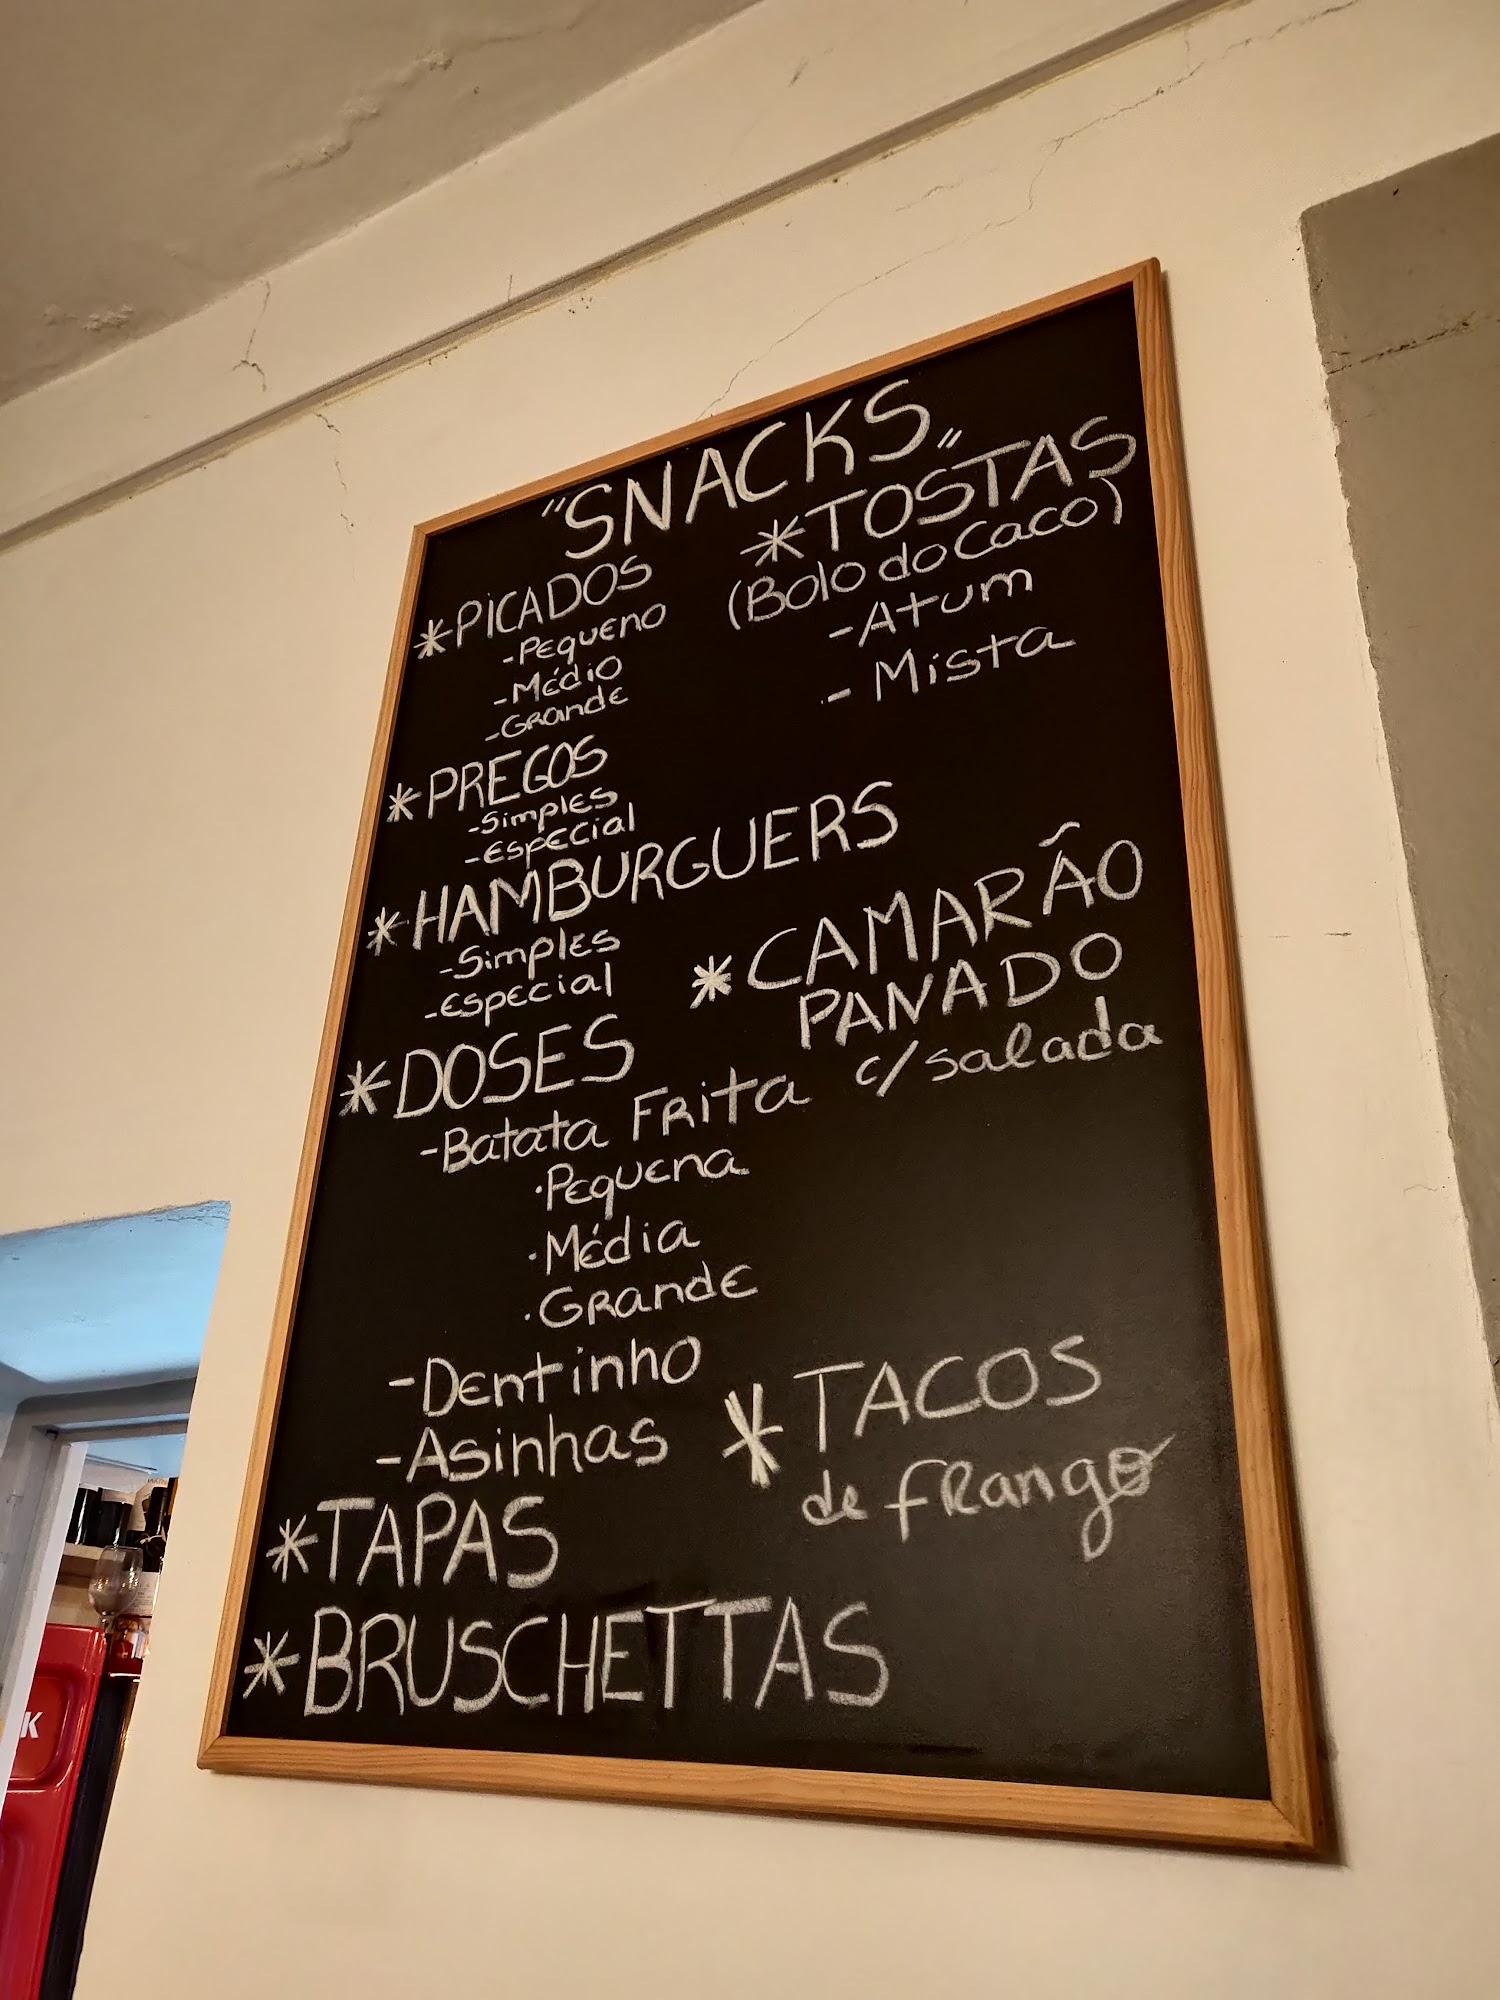 "SNACKS"
*PICADOS
-Pequeno
-Médio
-Grande
*PREGOS
-Simples
-Especial
*HAMBURGUERS
-Simples
-Especial
*DOSES
-Batata Frita
·Pequena
·Média
·Grande
-Dentinho
-Asinhas
*TAPAS
*BRUSCHETTAS
*TOSTAS
(Bolo do Caco)
-Atum
-Mista
*CAMARÃO
PANADO
c/salada
*TACOS
de frango
K